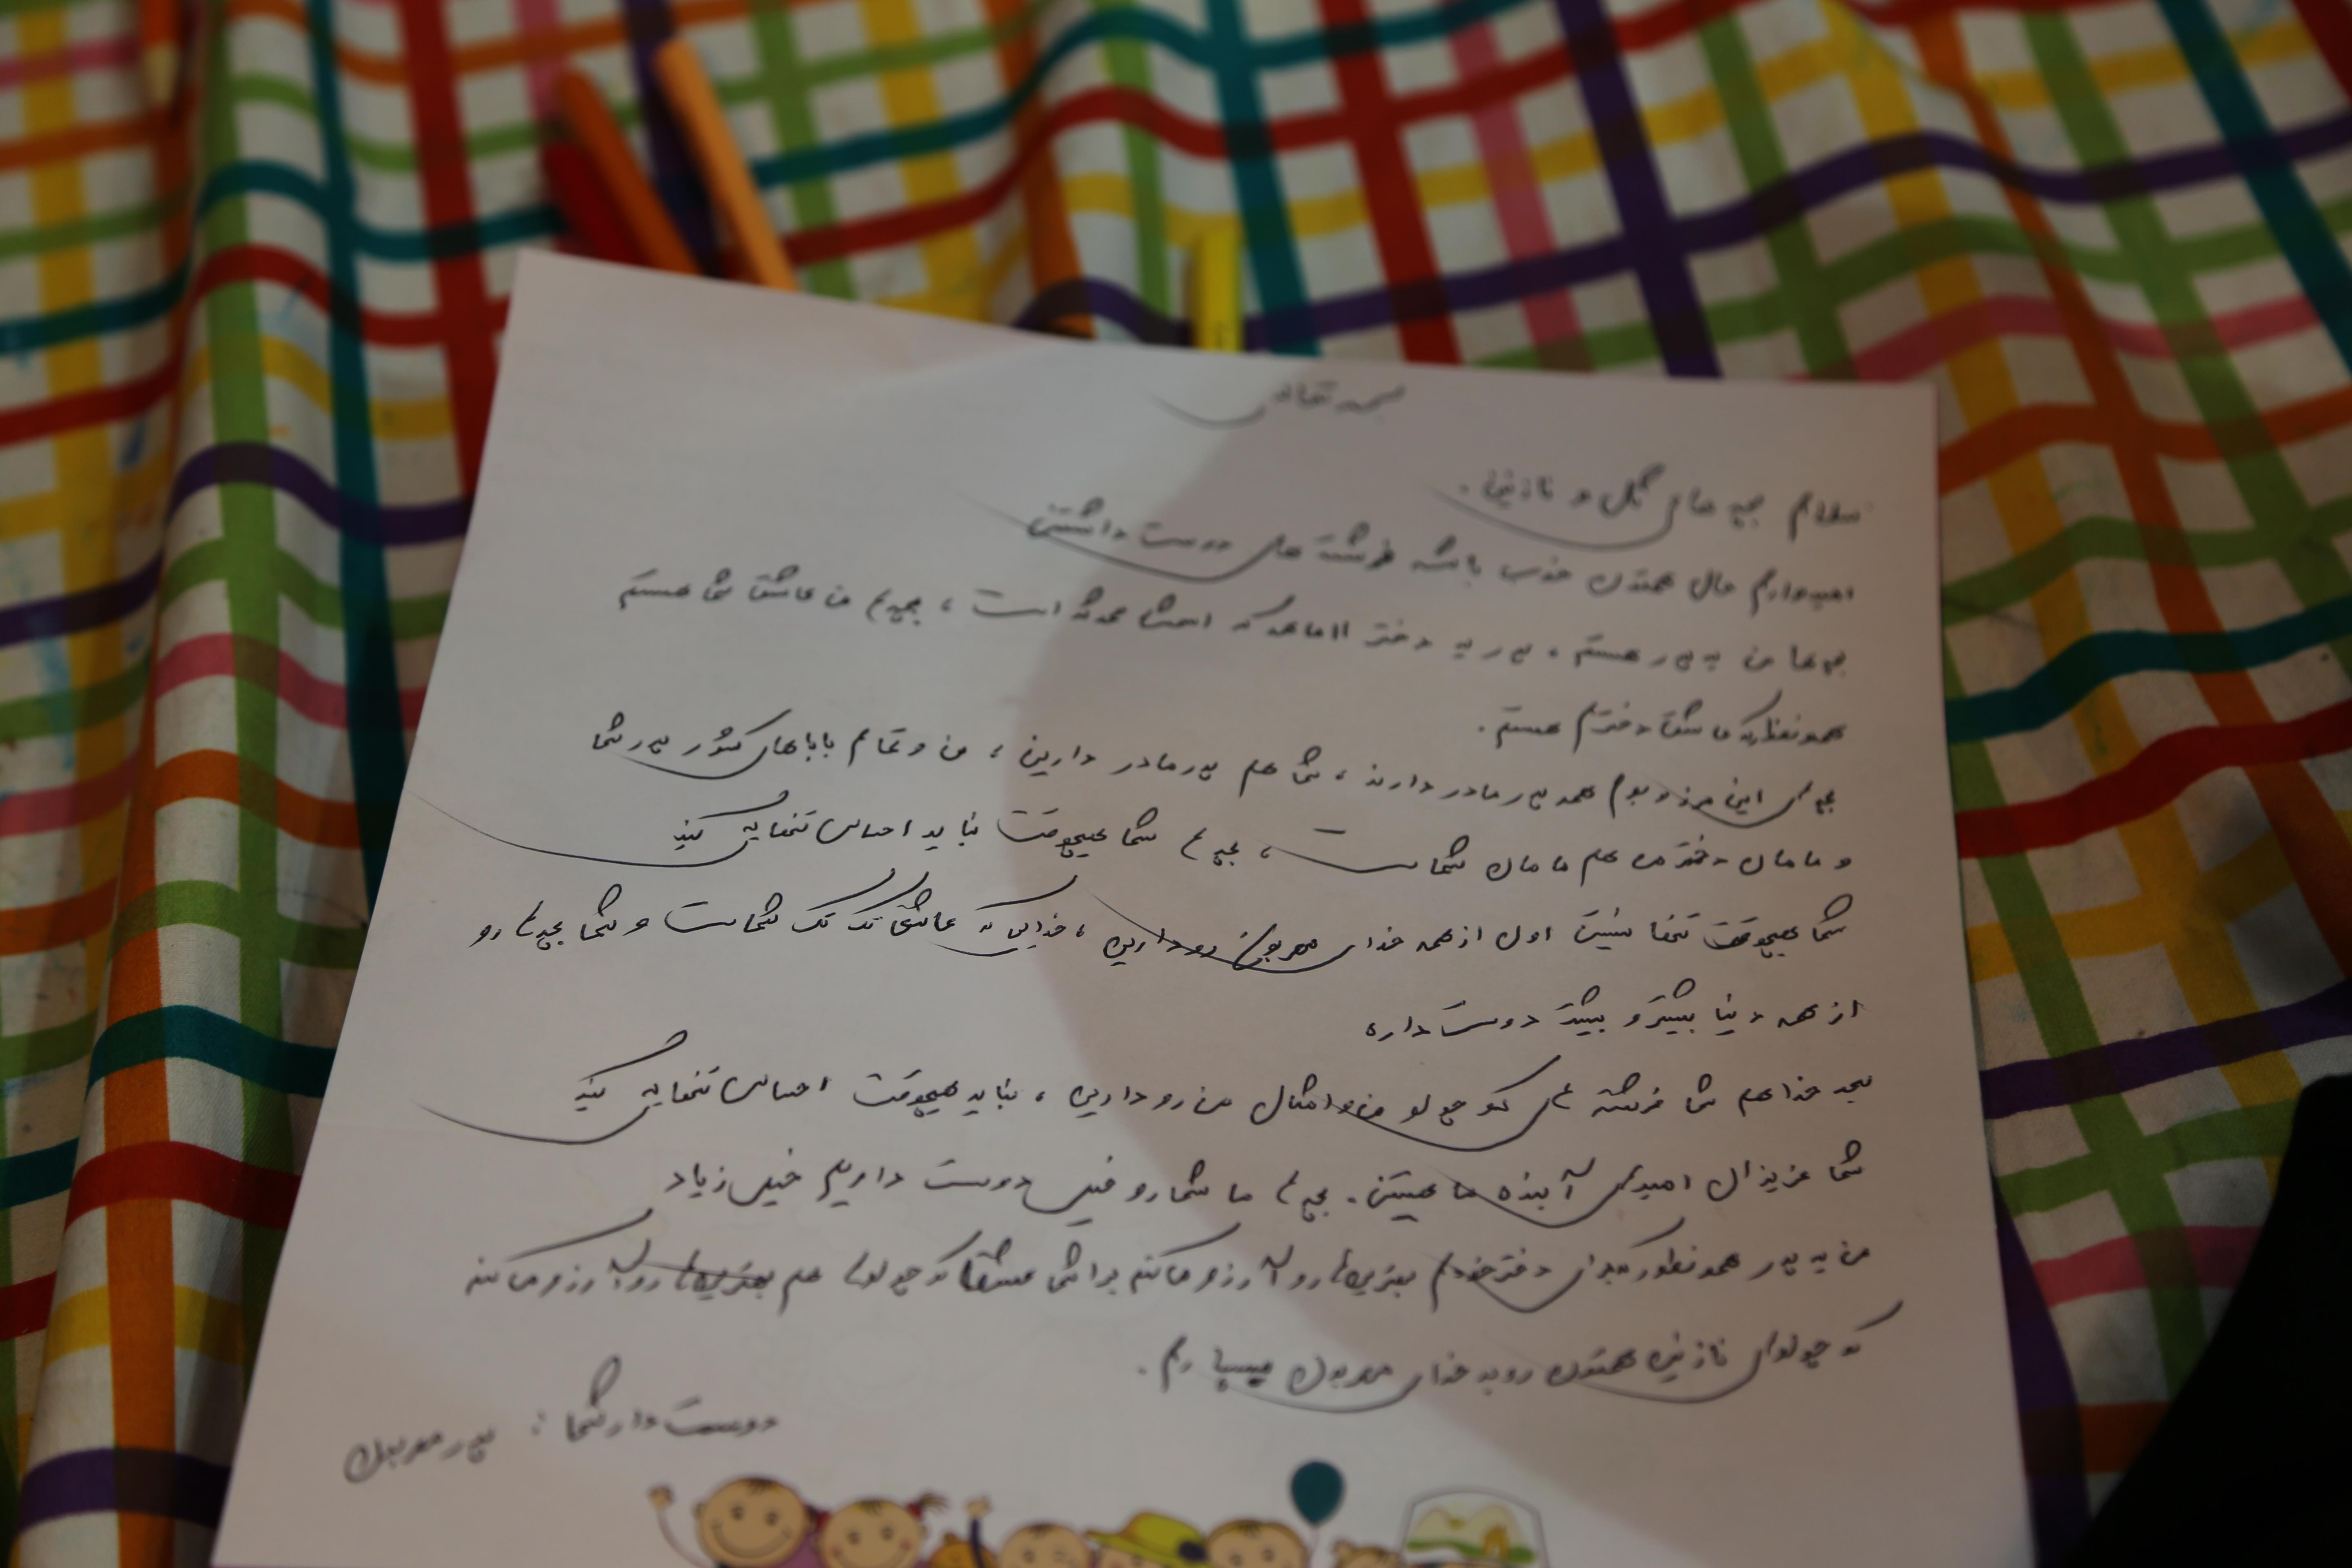 بسمه تعالی
سلام بچه های گل و نازنین.
امیدوارم حال همتون خوب باشه فرشته های دوست داشتنی
بچه ها من یه پدر هستم، پدر یه دختر ۱۱ ماهه که اسمش است، بچه ها من عاشق شما هستم
همونطور که عاشق دخترم هستم.
بچه های این مرز و بوم همه پدر مادر دارند، شما هم پدر مادر دارین، من و تمام باباهای کشور پدر شما
و مامان دختر من هم مامان شماست، بچه ها شما هیچوقت نباید احساس تنهایی کنید
شما هیچوقت تنها نیستین اول از همه خدای مهربون رو دارین، خدایی که عاشق تک تک شماست و شما بچه ها رو
از همه دنیا بیشتر و بیشتر دوست داره
بعد خدا هم شما فرشته های کوچولو من و امثال من رو دارین، نباید هیچوقت احساس تنهایی کنید
شما عزیزان امیدهای آینده ما هستین. بچه ها ما شما رو خیلی دوست داریم خیلی زیاد
من یه پدر همونطور که برای دختر خودم بهترین ها رو آرزو می کنم برا شما کوچولوها هم بهترین ها رو آرزو می کنم
کوچولوهای نازنین همتون رو به خدای مهربون میسپارم.
دوست دار شما : پدر مهربون